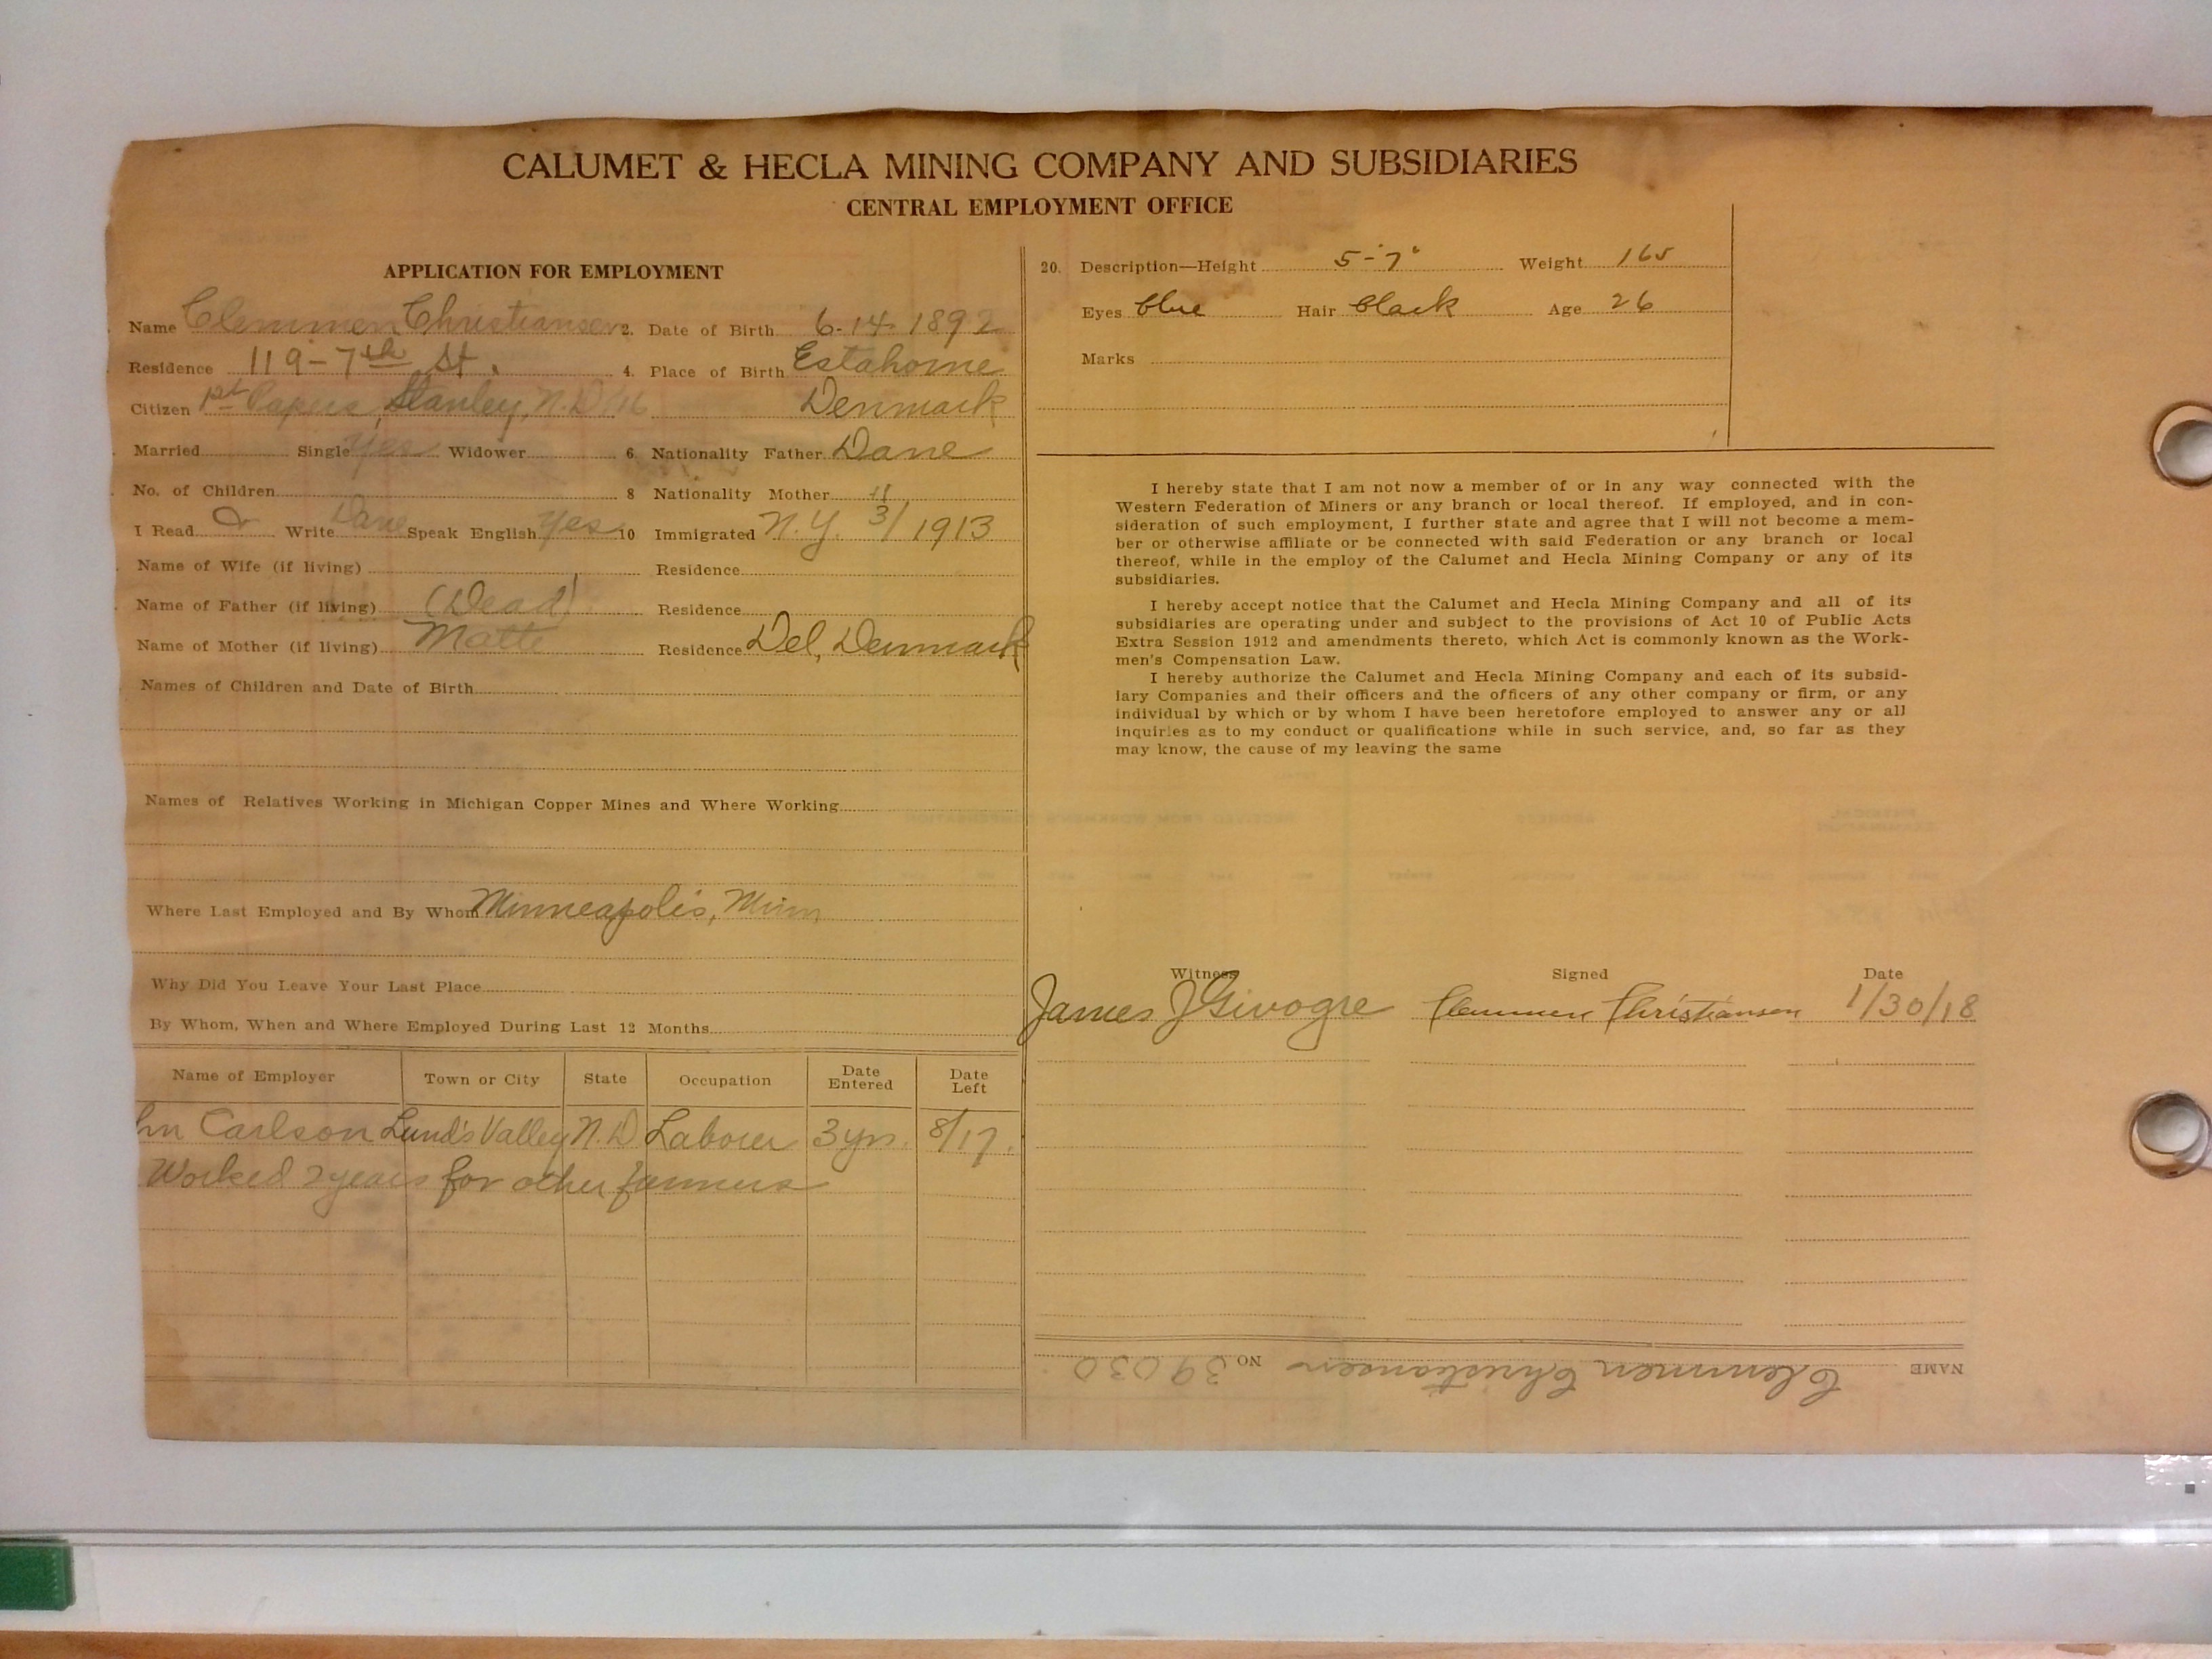 CALUMET & HECLA MINING COMPANY AND SUBSIDIARIES
CENTRAL EMPLOYMENT OFFICE
APPLICATION FOR EMPLOYMENT
Name Clemmen Christiansen 2. Date of Birth 6-14-1892
Residence 119-7th St. 4. Place of Birth Estahorne
Citizen 1st Papers, Stanley, N.D. Denmark
Married Single Yes Widower 6. Nationality Father Dane
No. of Children 8 Nationality Mother "
I Read & Write Dane Speak English Yes 10 Immigrated N.Y. 3/1913
Name of Wife (if living) Residence
Name of Father (if living) (Dead) Residence
Name of Mother (if living) Matte Residence Del, Denmark
Names of Children and Date of Birth
Names of Relatives Working in Michigan Copper Mines and Where Working
Where Last Employed and By Whom Minneapolis, Minn
Why Did You Leave Your Last Place
By Whom, When and Where Employed During Last 12 Months
Name of Employer Town or City State Occupation Date Entered Date Left
hn Carlson Lund's Valley N.D. Laborer 3 yrs. 8/17.
Worked 2 years for other farmers
20. Description—Height 5-7" Weight 165
Eyes blue Hair black Age 26
Marks
I hereby state that I am not now a member of or in any way connected with the
Western Federation of Miners or any branch or local thereof. If employed, and in con-
sideration of such employment, I further state and agree that I will not become a mem-
ber or otherwise affiliate or be connected with said Federation or any branch or local
thereof, while in the employ of the Calumet and Hecla Mining Company or any of its
subsidiaries.
I hereby accept notice that the Calumet and Hecla Mining Company and all of its
subsidiaries are operating under and subject to the provisions of Act 10 of Public Acts
Extra Session 1912 and amendments thereto, which Act is commonly known as the Work-
men's Compensation Law.
I hereby authorize the Calumet and Hecla Mining Company and each of its subsid-
iary Companies and their officers and the officers of any other company or firm, or any
individual by which or by whom I have been heretofore employed to answer any or all
inquiries as to my conduct or qualifications while in such service, and, so far as they
may know, the cause of my leaving the same
Witness Signed Date
James J Givogre Clemmen Christiansen 1/30/18
NAME Clemmen Christiansen NO 39030